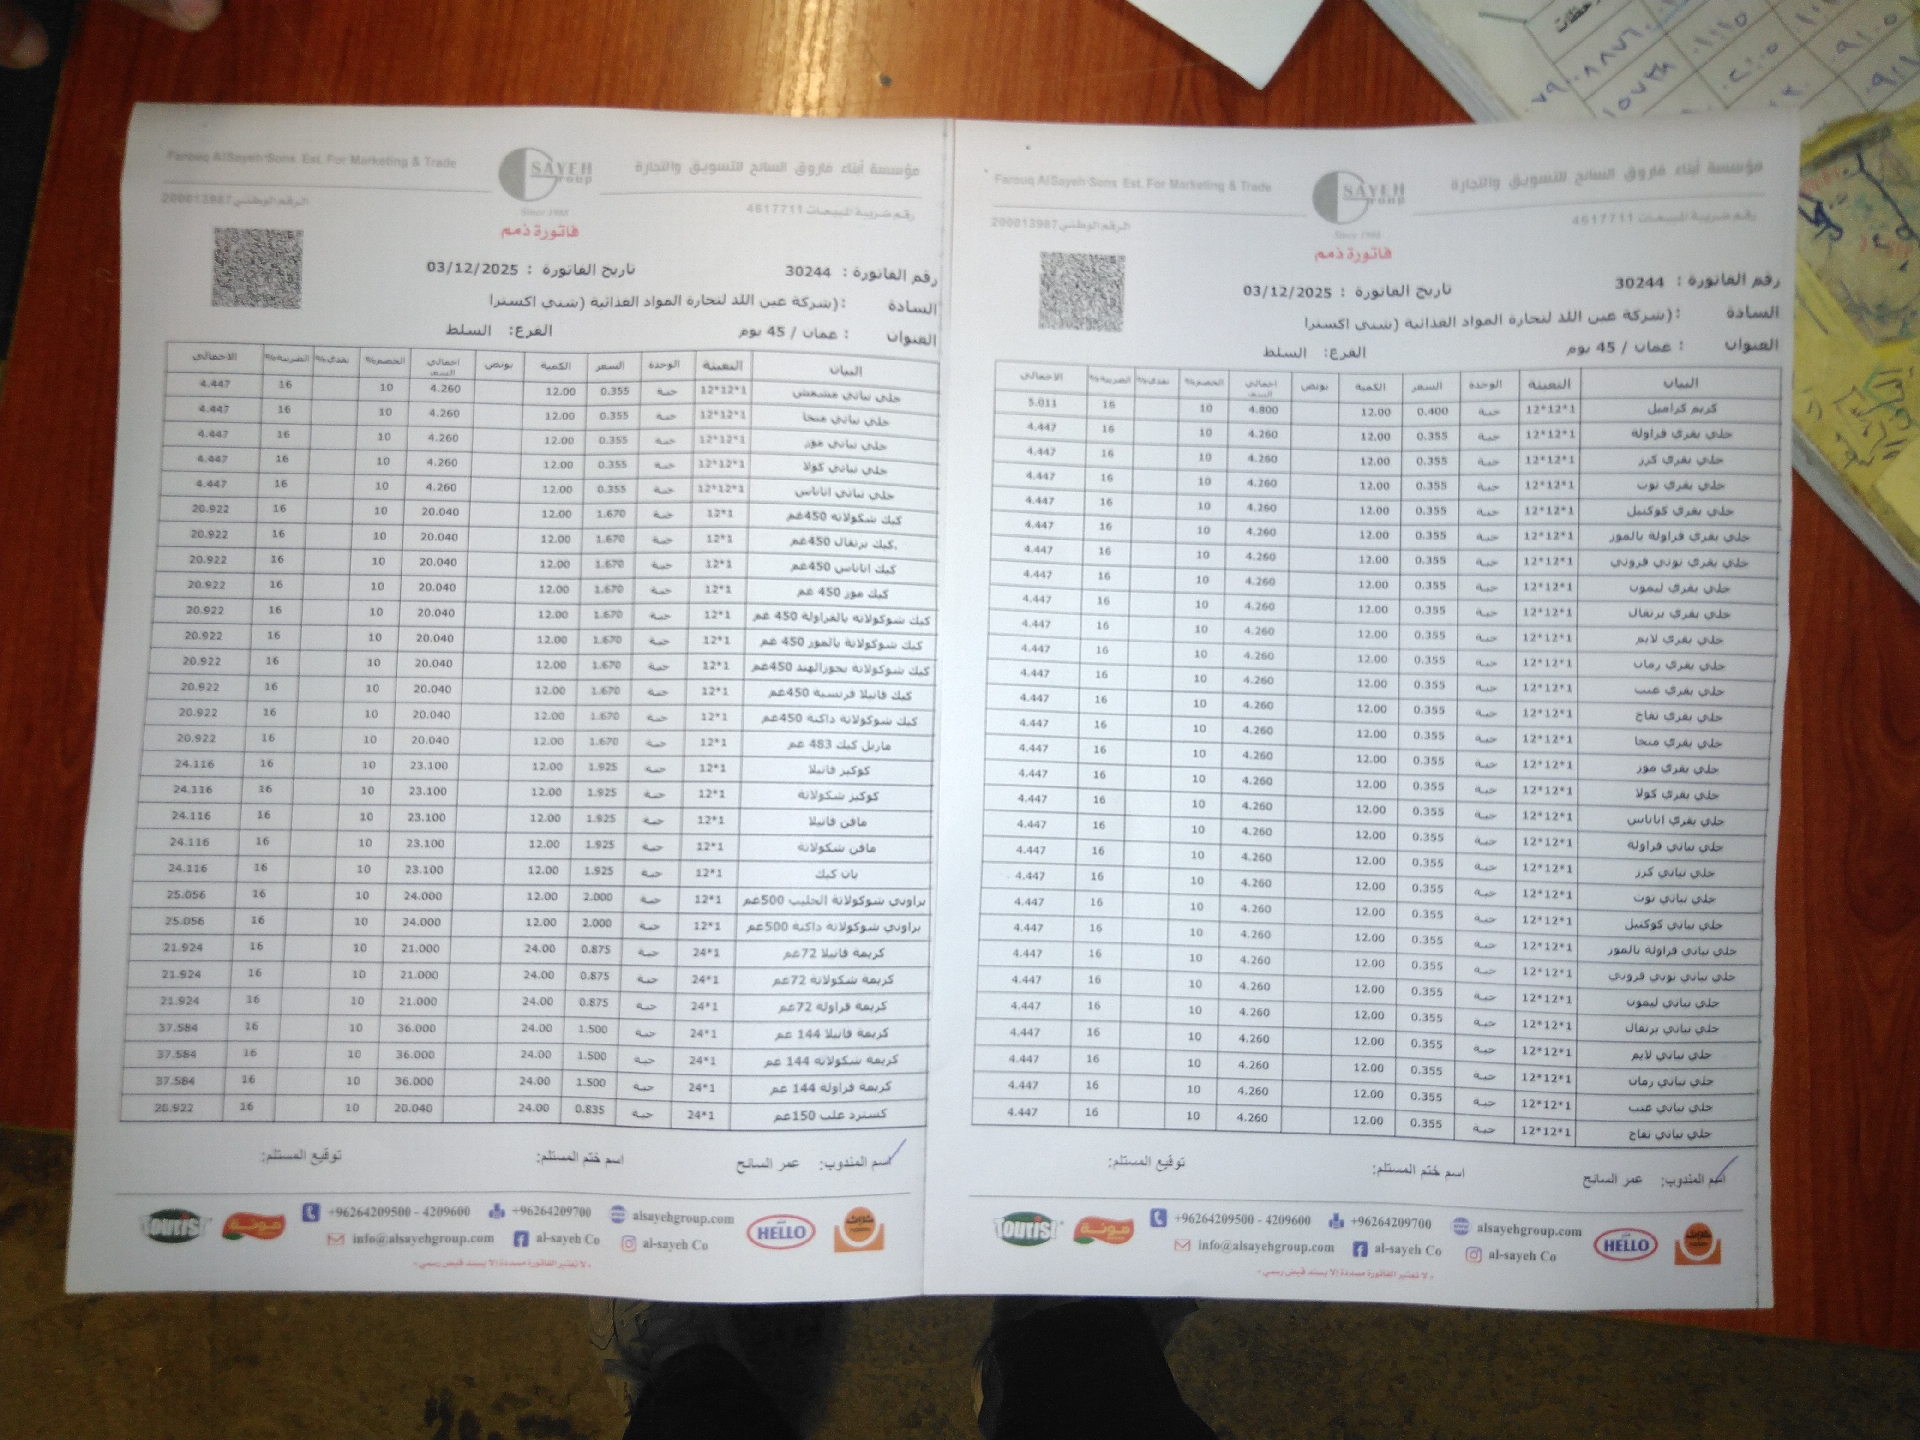 Farouq AlSayeh Sons Est. For Marketing & Trade
SAYEH Group
مؤسسة أبناء فاروق السايح للتسويق والتجارة
الرقم الوطني 200013987
Since 1988
رقم ضريبة المبيعات 4617711
فاتورة ذمم
رقم الفاتورة : 30244 تاريخ الفاتورة : 03/12/2025
السادة :(شركة عبن اللد لتجارة المواد الغذائية (شني اكسترا
العنوان : عمان / 45 يوم الفرع: السلط
البيان التعبئة الوحدة السعر الكمية بونص اجمالي السعر الخصم% نقدي% الضريبة% الاجمالي
كريم كراميل 12*12*1 حبة 0.400 12.00 4.800 10 16 5.011
جلي بقري فراولة 12*12*1 حبة 0.355 12.00 4.260 10 16 4.447
جلي بقري كرز 12*12*1 حبة 0.355 12.00 4.260 10 16 4.447
جلي بقري توت 12*12*1 حبة 0.355 12.00 4.260 10 16 4.447
جلي بقري كوكتيل 12*12*1 حبة 0.355 12.00 4.260 10 16 4.447
جلي بقري فراولة بالموز 12*12*1 حبة 0.355 12.00 4.260 10 16 4.447
جلي بقري توتي فروتي 12*12*1 حبة 0.355 12.00 4.260 10 16 4.447
جلي بقري ليمون 12*12*1 حبة 0.355 12.00 4.260 10 16 4.447
جلي بقري برتقال 12*12*1 حبة 0.355 12.00 4.260 10 16 4.447
جلي بقري لايم 12*12*1 حبة 0.355 12.00 4.260 10 16 4.447
جلي بقري رمان 12*12*1 حبة 0.355 12.00 4.260 10 16 4.447
جلي بقري عنب 12*12*1 حبة 0.355 12.00 4.260 10 16 4.447
جلي بقري تفاح 12*12*1 حبة 0.355 12.00 4.260 10 16 4.447
جلي بقري منجا 12*12*1 حبة 0.355 12.00 4.260 10 16 4.447
جلي بقري موز 12*12*1 حبة 0.355 12.00 4.260 10 16 4.447
جلي بقري كولا 12*12*1 حبة 0.355 12.00 4.260 10 16 4.447
جلي بقري اناناس 12*12*1 حبة 0.355 12.00 4.260 10 16 4.447
جلي نباتي فراولة 12*12*1 حبة 0.355 12.00 4.260 10 16 4.447
جلي نباتي كرز 12*12*1 حبة 0.355 12.00 4.260 10 16 4.447
جلي نباتي توت 12*12*1 حبة 0.355 12.00 4.260 10 16 4.447
جلي نباتي كوكتيل 12*12*1 حبة 0.355 12.00 4.260 10 16 4.447
جلي نباتي فراولة بالموز 12*12*1 حبة 0.355 12.00 4.260 10 16 4.447
جلي نباتي توتي فروتي 12*12*1 حبة 0.355 12.00 4.260 10 16 4.447
جلي نباتي ليمون 12*12*1 حبة 0.355 12.00 4.260 10 16 4.447
جلي نباتي برتقال 12*12*1 حبة 0.355 12.00 4.260 10 16 4.447
جلي نباتي لايم 12*12*1 حبة 0.355 12.00 4.260 10 16 4.447
جلي نباتي رمان 12*12*1 حبة 0.355 12.00 4.260 10 16 4.447
جلي نباتي عنب 12*12*1 حبة 0.355 12.00 4.260 10 16 4.447
جلي نباتي تفاح 12*12*1 حبة 0.355 12.00 4.260 10 16 4.447
اسم المندوب: عمر السايح اسم ختم المستلم: توقيع المستلم:
Tourist مونة +96264209500 - 4209600 +96264209700 alsayehgroup.com HELLO
info@alsayehgroup.com al-sayeh Co al-sayeh Co
- لا تعتبر الفاتورة مسددة إلا بسند قبض رسمي -
Farouq AlSayeh Sons Est. For Marketing & Trade
SAYEH Group
مؤسسة أبناء فاروق السايح للتسويق والتجارة
الرقم الوطني 200013987
Since 1988
رقم ضريبة المبيعات 4617711
فاتورة ذمم
رقم الفاتورة : 30244 تاريخ الفاتورة : 03/12/2025
السادة :(شركة عبن اللد لتجارة المواد الغذائية (شني اكسترا
العنوان : عمان / 45 يوم الفرع: السلط
البيان التعبئة الوحدة السعر الكمية بونص اجمالي السعر الخصم% نقدي% الضريبة% الاجمالي
جلي نباتي مشمش 12*12*1 حبة 0.355 12.00 4.260 10 16 4.447
جلي نباتي منجا 12*12*1 حبة 0.355 12.00 4.260 10 16 4.447
جلي نباتي موز 12*12*1 حبة 0.355 12.00 4.260 10 16 4.447
جلي نباتي كولا 12*12*1 حبة 0.355 12.00 4.260 10 16 4.447
جلي نباتي اناناس 12*12*1 حبة 0.355 12.00 4.260 10 16 4.447
كيك شكولاتة 450غم 12*1 حبة 1.670 12.00 20.040 10 16 20.922
كيك برتقال 450غم. 12*1 حبة 1.670 12.00 20.040 10 16 20.922
كيك اناناس 450غم 12*1 حبة 1.670 12.00 20.040 10 16 20.922
كيك موز 450 غم 12*1 حبة 1.670 12.00 20.040 10 16 20.922
كيك شوكولاتة بالفراولة 450 غم 12*1 حبة 1.670 12.00 20.040 10 16 20.922
كيك شوكولاتة بالموز 450 غم 12*1 حبة 1.670 12.00 20.040 10 16 20.922
كيك شوكولاتة بجوزالهند 450غم 12*1 حبة 1.670 12.00 20.040 10 16 20.922
كيك فانيلا فرنسية 450غم 12*1 حبة 1.670 12.00 20.040 10 16 20.922
كيك شوكولاتة داكنة 450غم 12*1 حبة 1.670 12.00 20.040 10 16 20.922
ماربل كيك 483 غم 12*1 حبة 1.670 12.00 20.040 10 16 20.922
كوكيز فانيلا 12*1 حبة 1.925 12.00 23.100 10 16 24.116
كوكيز شكولاتة 12*1 حبة 1.925 12.00 23.100 10 16 24.116
مافن فانيلا 12*1 حبة 1.925 12.00 23.100 10 16 24.116
مافن شكولاتة 12*1 حبة 1.925 12.00 23.100 10 16 24.116
بان كيك 12*1 حبة 1.925 12.00 23.100 10 16 24.116
براوني شوكولاتة الحليب 500غم 12*1 حبة 2.000 12.00 24.000 10 16 25.056
براوني شوكولاتة داكنة 500غم 12*1 حبة 2.000 12.00 24.000 10 16 25.056
كريمة فانيلا 72غم 24*1 حبة 0.875 24.00 21.000 10 16 21.924
كريمة شكولاتة 72غم 24*1 حبة 0.875 24.00 21.000 10 16 21.924
كريمة فراولة 72غم 24*1 حبة 0.875 24.00 21.000 10 16 21.924
كريمة فانيلا 144 غم 24*1 حبة 1.500 24.00 36.000 10 16 37.584
كريمة شكولاتة 144 غم 24*1 حبة 1.500 24.00 36.000 10 16 37.584
كريمة فراولة 144 غم 24*1 حبة 1.500 24.00 36.000 10 16 37.584
كسترد علب 150غم 24*1 حبة 0.835 24.00 20.040 10 16 20.922
اسم المندوب: عمر السايح اسم ختم المستلم: توقيع المستلم:
Tourist مونة +96264209500 - 4209600 +96264209700 alsayehgroup.com HELLO
info@alsayehgroup.com al-sayeh Co al-sayeh Co
- لا تعتبر الفاتورة مسددة إلا بسند قبض رسمي -